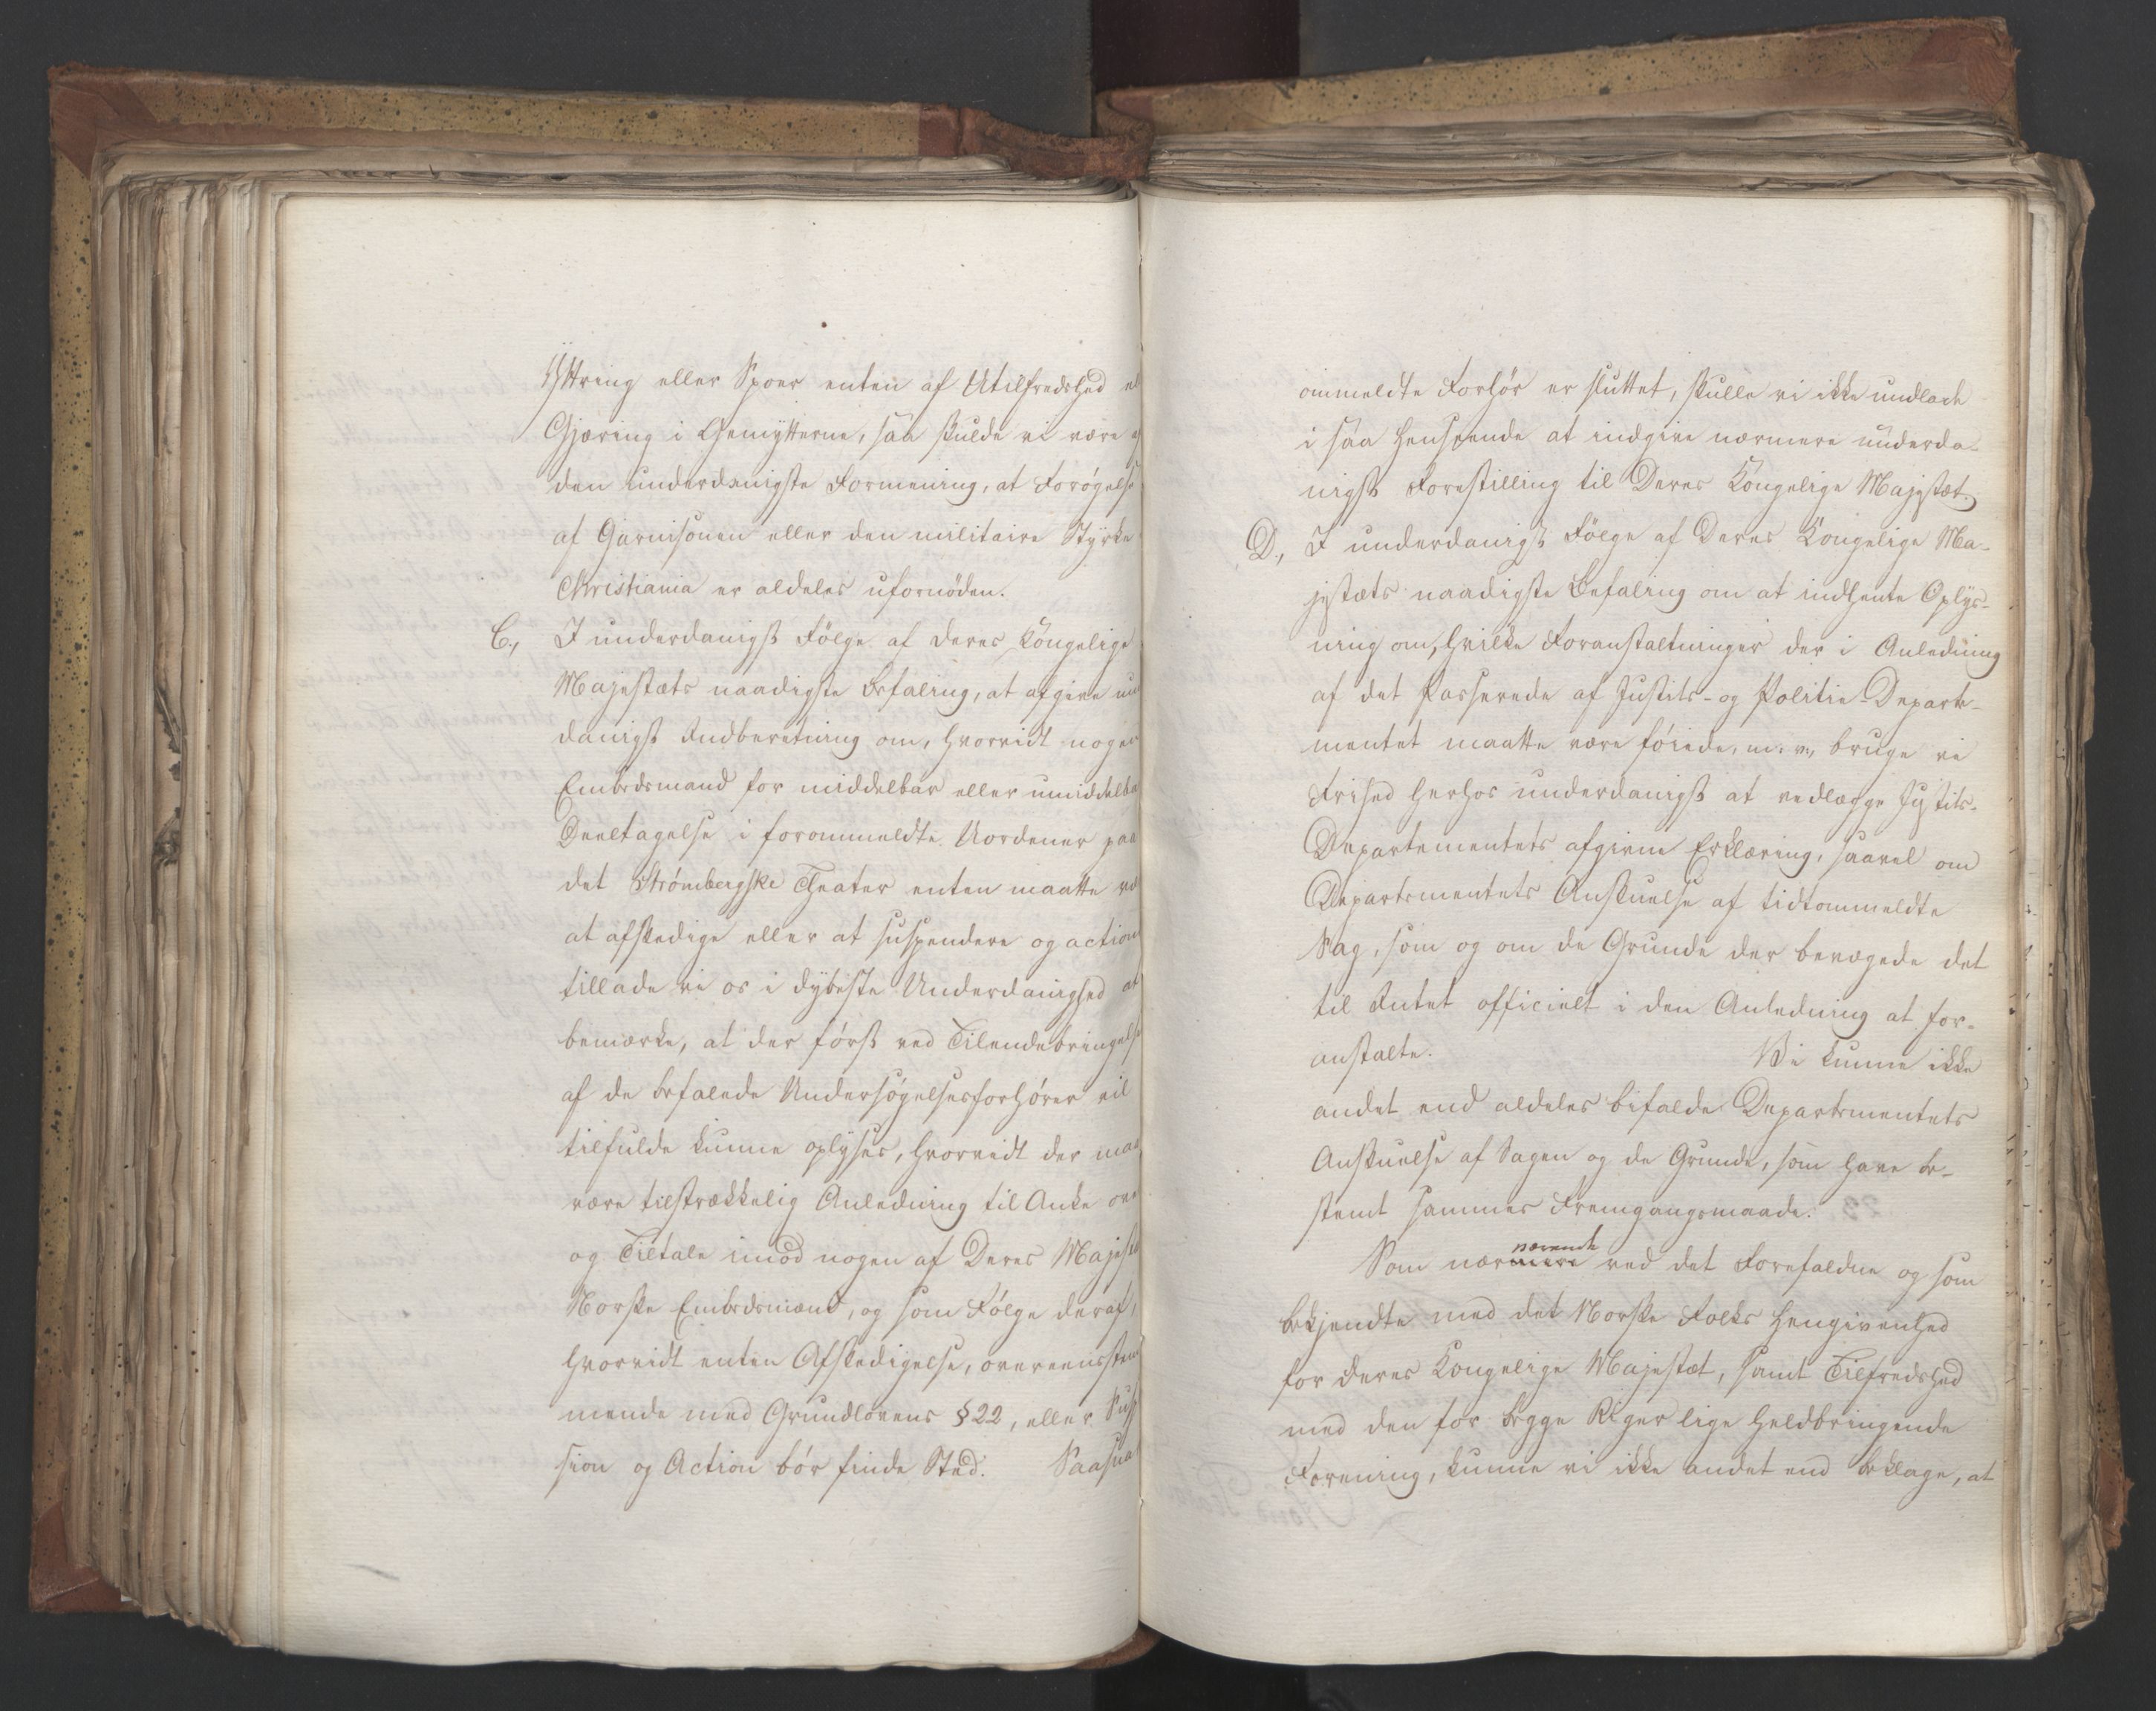 Yttring eller Spoer enten af Utilfredshed el
Gjæring i Gemytterne, saa skulde vi være af
den underdanigste Formening, at Forøgelse
af Garnisonen eller den militaire Styrke
Christiania er aldeles ufornøden.
C., I underdanigst Følge af Deres Kongelige
Majestæts naadigste Befaling, at afgive un
danigst Indberetning om, hvorvidt nogen
Embedsmand for middelbar eller umiddelba
Deeltagelse i forommeldte Uordener paa
det Strømbergske Theater enten maatte væ
at afskedige eller at suspendere og action
tillade vi os i dybeste Underdanighed at
bemærke, at der først ved Tilendebringelse
af de befalede Undersøgelsesforhører vil
tilfulde kunne oplyses, hvorvidt der maa
være tilstrækkelig Anledning til Anke ove
og Tiltale imod nogen af Deres Majestæ
Norske Embedsmænd, og som Følge deraf,
hvorvidt enten Afskedigelse, overeensstem
mende med Grundlovens § 22, eller Susp
sion og Action bør finde Sted. Saasna
ommeldte Forhør er sluttet, skulle vi ikke undlade
i saa Henseende at indgive nærmere underda-
nigst Forestilling til Deres Kongelige Majestæt.
D., I underdanigst Følge af Deres Kongelige Ma-
jestæts naadigste Befaling om at indhente Oplys-
ning om, hvilke Foranstaltninger der i Anledning
af det Passerede af Justits- og Politie-Departe-
mentet maatte være føiede, m. v., bruge vi
Frihed herhos underdanigst at vedlægge Justits-
Departementets afgivne Erklæring, saavel om
Departementets Anskuelse af tidtommeldte
Sag, som og om de Grunde der bevægede det
til Intet officielt i den Anledning at for-
anstalte. Vi kunne ikke
andet end aldeles bifalde Departementets
Anskuelse af Sagen og de Grunde, som have be-
stemt sammes Fremgangsmaade.
Som nærmere værende ved det Forefaldne og som
bekjendte med det Norske Folks Hengivenhed
for Deres Kongelige Majestæt, samt Tilfredshed
med den for begge Riger lige heldbringende
Forening, kunne vi ikke andet end beklage, at